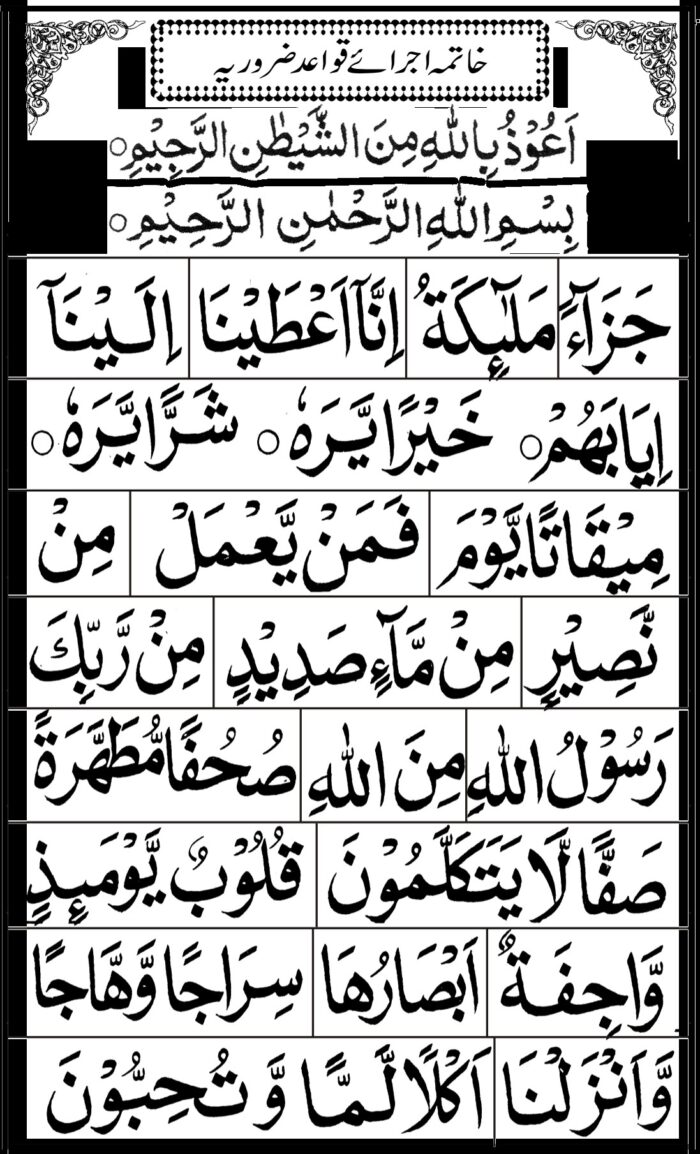 خاتمہ اجرائے قواعد ضروریہ
اَعُوْذُ بِاللّٰهِ مِنَ الشَّيْطٰنِ الرَّجِيْمِ○
بِسْمِ اللّٰهِ الرَّحْمٰنِ الرَّحِيْمِ○
جَزَآءً مَلٰٓئِكَةُ اِنَّاۤ اَعْطَيْنَا اِلَيْنَاۤ
اِيَابَهُمْ○ خَيْرًا يَّرَهٗ○ شَرًّا يَّرَهٗ○
مِيْقَاتًا يَّوْمَ فَمَنْ يَّعْمَلْ مِنْ
نَّصِيْرٍ مِنْ مَّآءٍ صَدِيْدٍ مِنْ رَّبِّكَ
رَسُوْلُ اللّٰهِ مِنَ اللّٰهِ صُحُفًا مُّطَهَّرَةً
صَفًّا لَّا يَتَكَلَّمُوْنَ قُلُوْبٌ يَّوْمَئِذٍ
وَّاجِفَةٌ اَبْصَارُهَا سِرَاجًا وَّهَّاجًا
وَّاَنْزَلْنَا اَكْلًا لَّمًّا وَّ تُحِبُّوْنَ